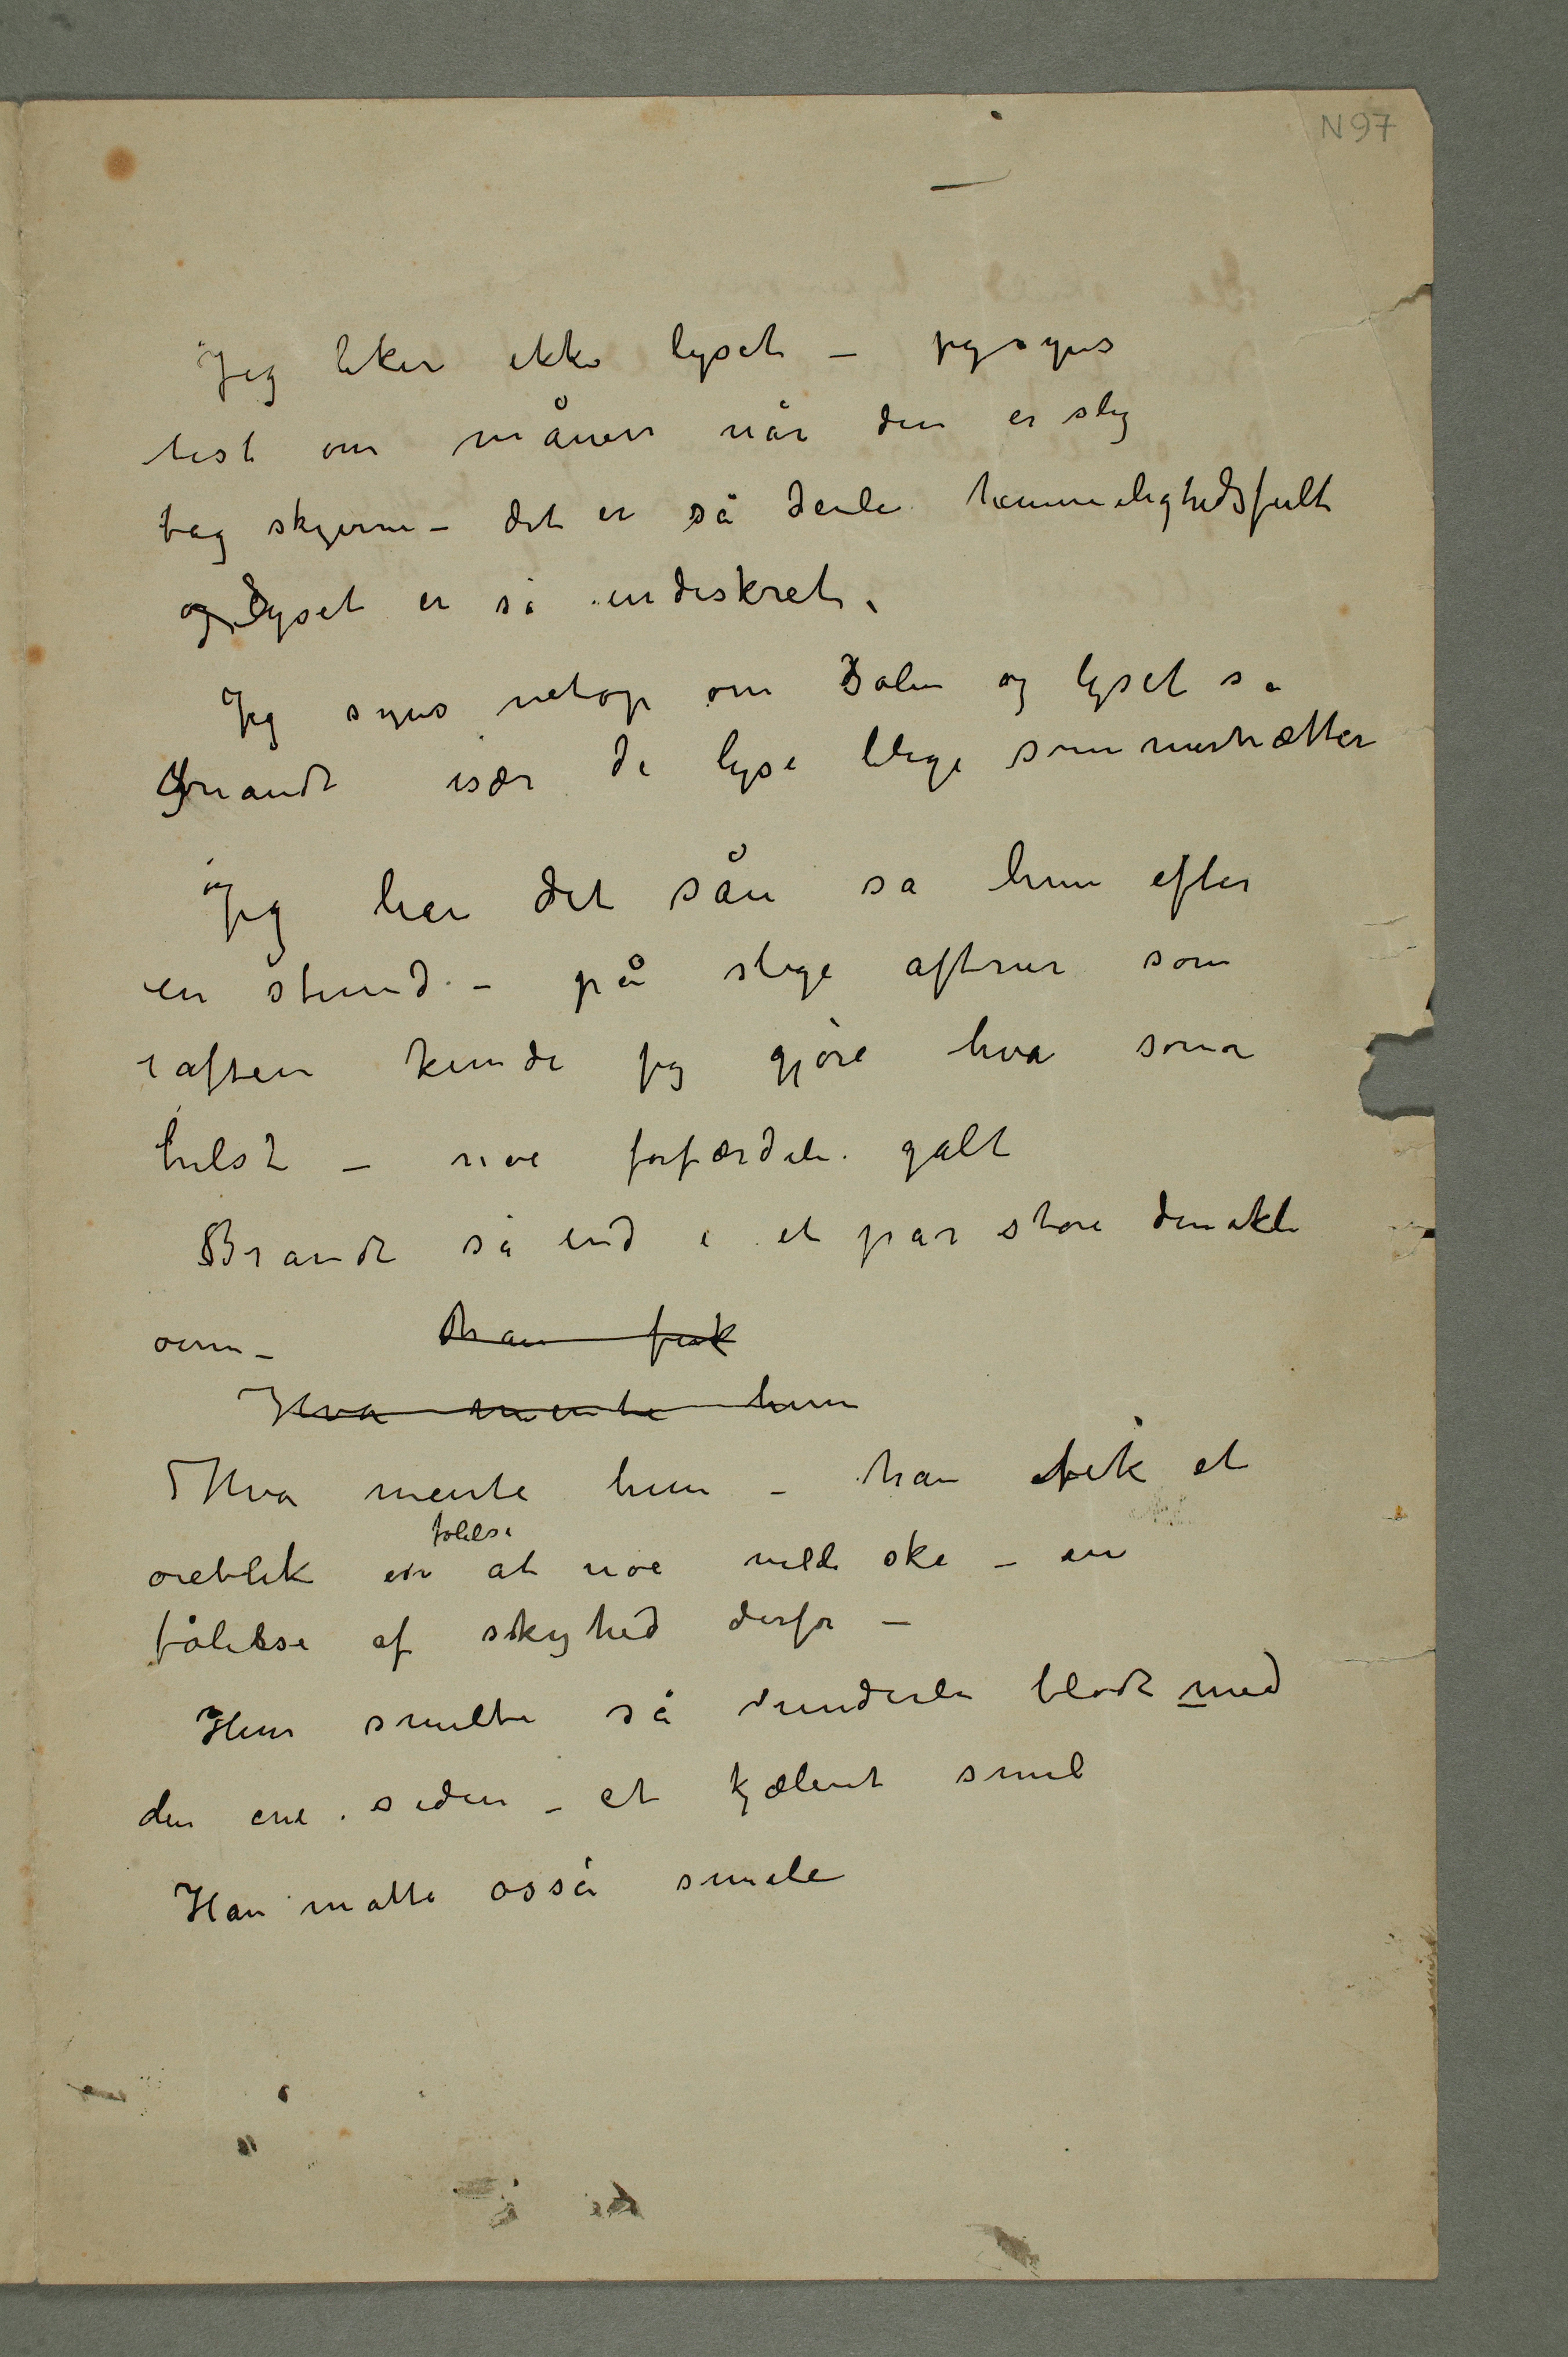 N 97
Jeg liker ikke lyset – jeg synes
best om månen når den er slig
bag skyerne – det er så deili hemmelighedsfult
og lyset er så indiskret.
Jeg synes netop om Solen og lyset sa
Brandt især de lyse blege sommernætter
Jeg har det sån sa hun efter
en stund – på slige aftner som
iaften kunde jeg gjöre hva som
helst – noe forfærdeli galt
Brandt så ind i et par store dunkle
oine –
han fik
Hva mente hun
Hva mente hun – han fik et
oieblik en følelse at noe vilde ske – en
følelse af skyhed derfor –
Hun smilte så underli blødt med
den ene siden – et kjælent smil
Han måtte osså smile